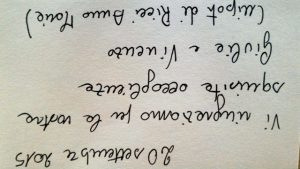 20 settembre 2015
Vi ringraziamo per la vostra
squisita accoglienza
Giulia e Vincenzo
(nipoti di Ricci Anna Maria)